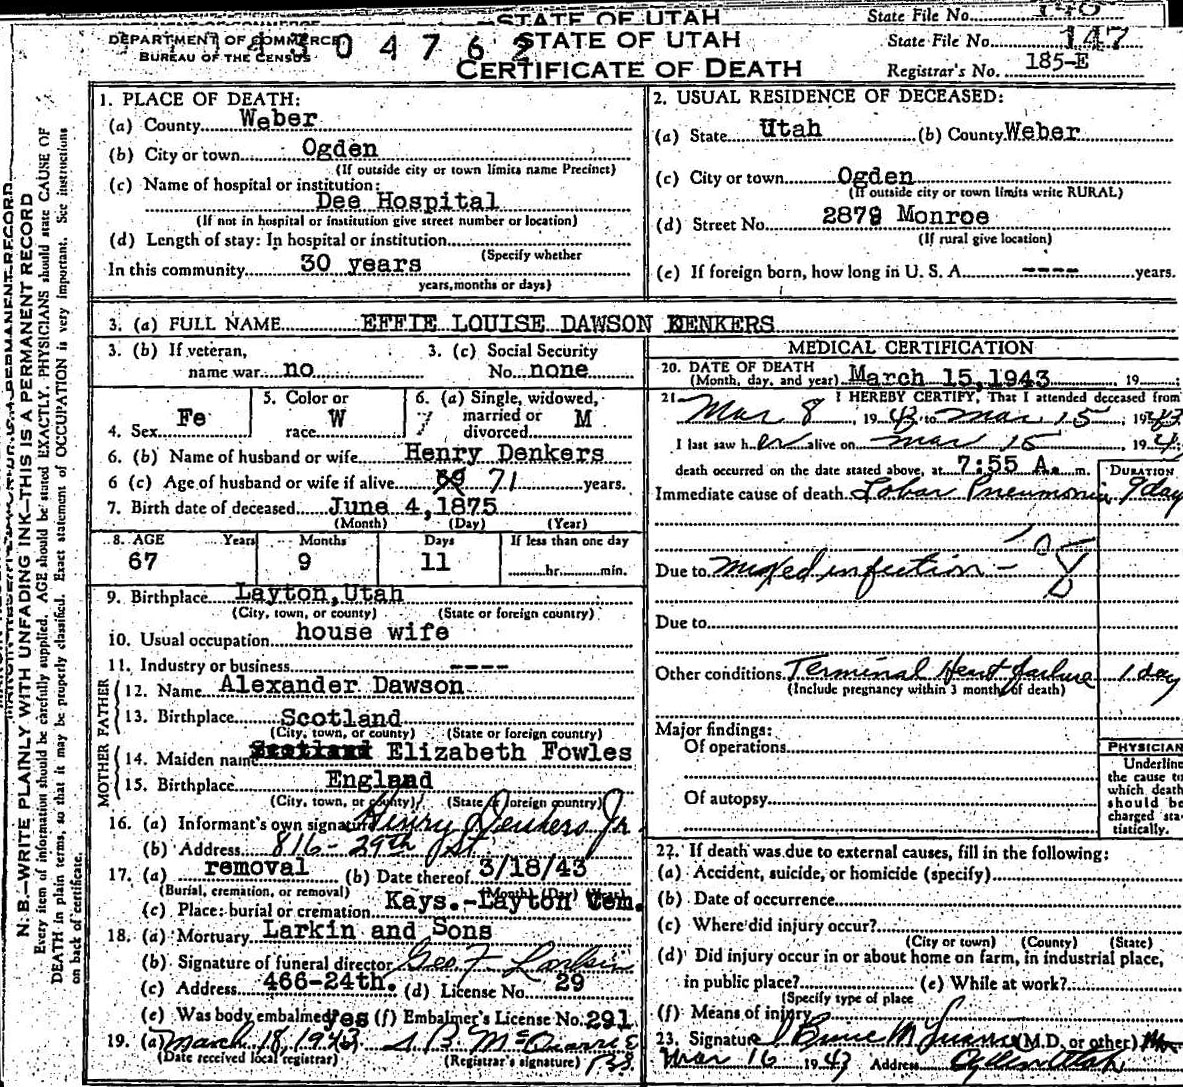 STATE OF UTAH
State File No. 146
DEPARTMENT OF COMMERCE
BUREAU OF THE CENSUS
4304762
STATE OF UTAH
State File No. 147
CERTIFICATE OF DEATH
Registrar's No. 185-E
N. B.—WRITE PLAINLY WITH UNFADING INK—THIS IS A PERMANENT RECORD
Every item of information should be carefully supplied. AGE should be stated EXACTLY. PHYSICIANS should state CAUSE OF
DEATH in plain terms, so that it may be properly classified. Exact statement of OCCUPATION is very important. See instructions
on back of certificate.
1. PLACE OF DEATH:
(a) County Weber
(b) City or town Ogden
(If outside city or town limits name Precinct)
(c) Name of hospital or institution:
Dee Hospital
(If not in hospital or institution give street number or location)
(d) Length of stay: In hospital or institution
(Specify whether
In this community 30 years
years, months or days)
2. USUAL RESIDENCE OF DECEASED:
(a) State Utah (b) County Weber
(c) City or town Ogden
(If outside city or town limits write RURAL)
(d) Street No. 2879 Monroe
(If rural give location)
(e) If foreign born, how long in U. S. A. ---- years.
3. (a) FULL NAME EFFIE LOUISE DAWSON DENKERS
3. (b) If veteran, name war no
3. (c) Social Security No. none
4. Sex Fe
5. Color or race W
6. (a) Single, widowed, married or divorced M
6. (b) Name of husband or wife Henry Denkers
6 (c) Age of husband or wife if alive 71 years.
7. Birth date of deceased June 4, 1875
(Month) (Day) (Year)
8. AGE Years Months Days If less than one day
67 9 11 hr. min.
9. Birthplace Layton, Utah
(City, town, or county) (State or foreign country)
10. Usual occupation house wife
11. Industry or business ----
FATHER
12. Name Alexander Dawson
13. Birthplace Scotland
(City, town, or county) (State or foreign country)
MOTHER
14. Maiden name Scotland Elizabeth Fowles
15. Birthplace England
(City, town, or county) (State or foreign country)
16. (a) Informant's own signature Henry Denkers Jr
(b) Address 816-29th St
17. (a) removal (b) Date thereof 3/18/43
(Burial, cremation, or removal) (Month) (Day) (Year)
(c) Place: burial or cremation Kays.-Layton Cem.
18. (a) Mortuary Larkin and Sons
(b) Signature of funeral director Geo F Larkin
(c) Address 466-24th. (d) License No. 29
(e) Was body embalmed yes (f) Embalmer's License No. 291
19. (a) March 18, 1943
(Date received local registrar) (Registrar's signature)
MEDICAL CERTIFICATION
20. DATE OF DEATH
(Month, day, and year) March 15, 1943, 19
21. I HEREBY CERTIFY, That I attended deceased from
Mar 8, 1943, to Mar 15, 1943
I last saw her alive on Mar 15, 194
death occurred on the date stated above, at 7:55 A. m.
DURATION
Immediate cause of death Lobar Pneumonia 9 day
108
Due to mixed infection -
Due to
Other conditions Terminal Heart failure 1 day
(Include pregnancy within 3 months of death)
Major findings:
Of operations
Of autopsy
PHYSICIAN
Underline
the cause to
which death
should be
charged sta-
tistically.
22. If death was due to external causes, fill in the following:
(a) Accident, suicide, or homicide (specify)
(b) Date of occurrence
(c) Where did injury occur?
(City or town) (County) (State)
(d) Did injury occur in or about home on farm, in industrial place,
in public place? (e) While at work?
(Specify type of place
(f) Means of injury
23. Signature (M.D. or other)
Mar 16 1943 Address Ogden Utah